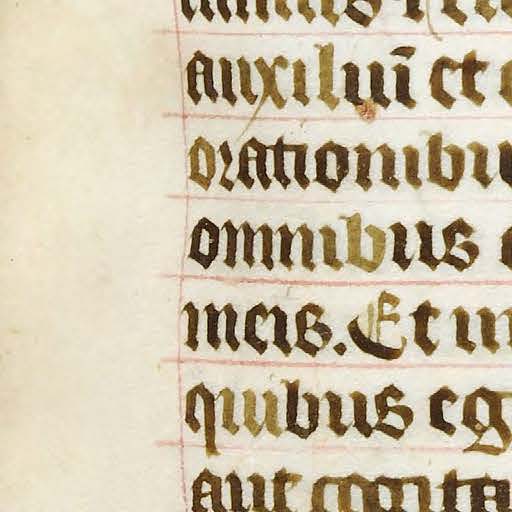 auxiliuī et
orationibu
omnibus
meis. Et in
quibus eg
aut cogita